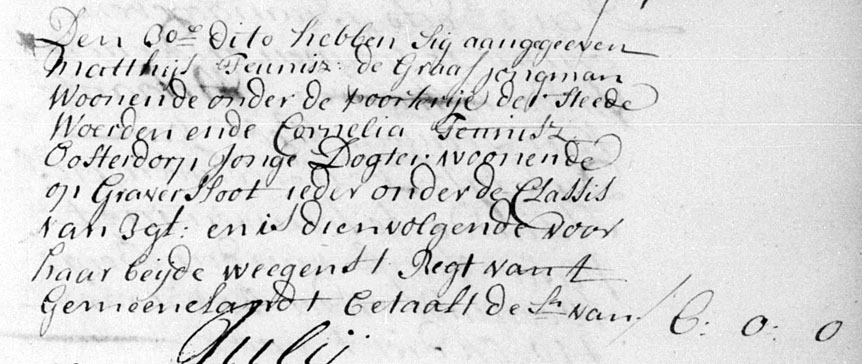 Den 30e dito hebben sig aangegeeven
Matthijs Teunisz: de Graaf jongman
Woonende onder de poorterije der steede
Woerden ende Cornelia Teunisz
Oosterdorp Jonge Dogter woonende
op Graversloot ieder onder de Classis
van 3 gl: en is dienvolgende voor
haar beijde weegens t Regt van t
Gemeenelandt betaalt de Sn van 6: 0: 0
Julij